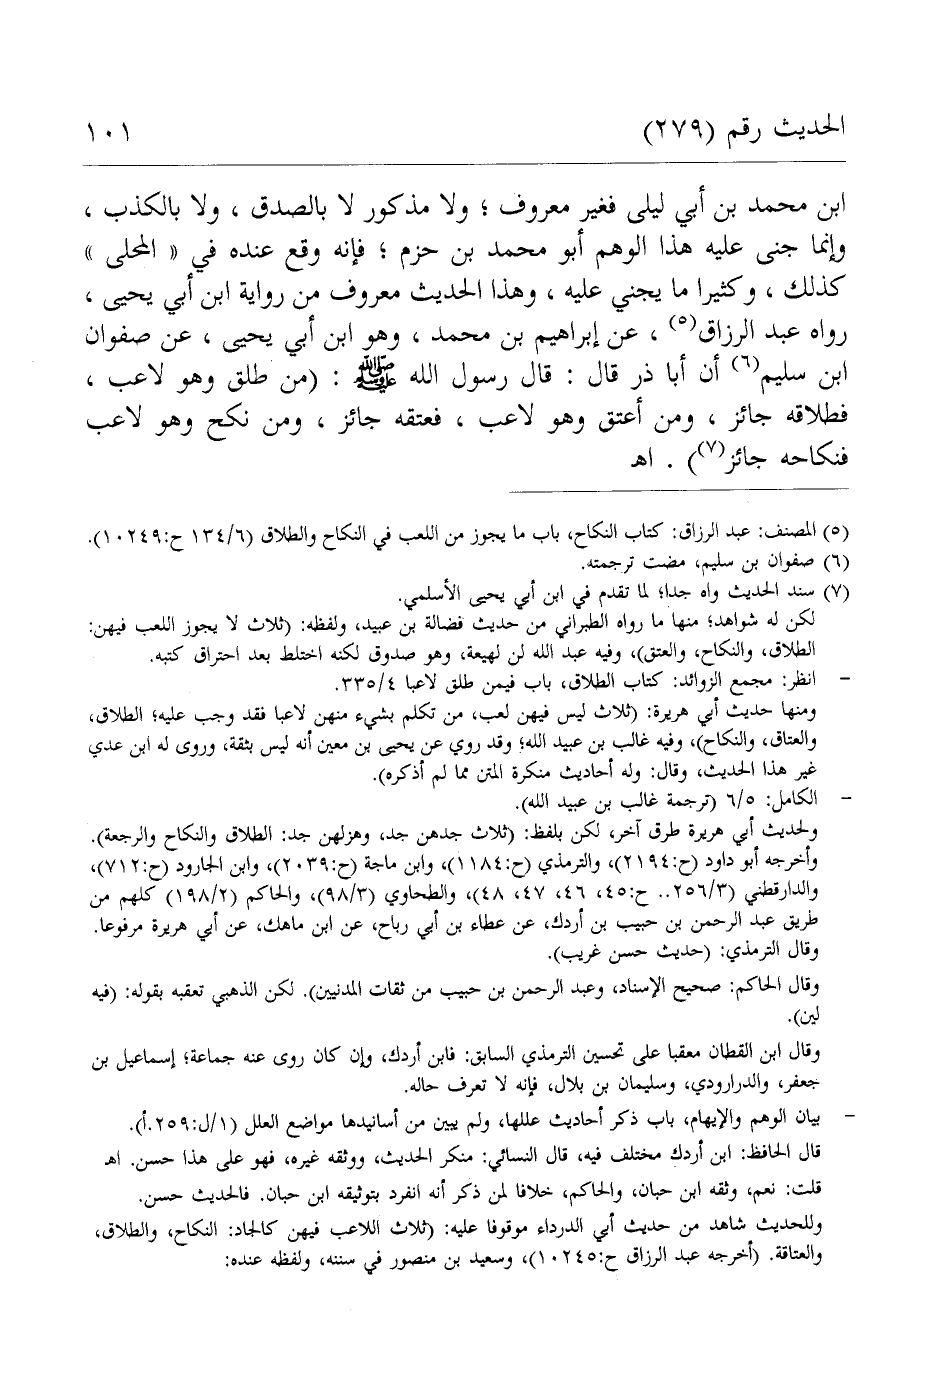 الحديث رقم (٢٧٩) ١٠١
ابن محمد بن أبي ليلى فغير معروف ؛ ولا مذكور لا بالصدق ، ولا بالكذب ،
وإنما جنى عليه هذا الوهم أبو محمد بن حزم ؛ فإنه وقع عنده في « المحلى »
كذلك ، وكثيرا ما يجني عليه ، وهذا الحديث معروف من رواية ابن أبي يحيى ،
رواه عبد الرزاق(٥) ، عن إبراهيم بن محمد ، وهو ابن أبي يحيى ، عن صفوان
ابن سليم(٦) أن أبا ذر قال : قال رسول الله ﷺ : (من طلق وهو لاعب ،
فطلاقه جائز ، ومن أعتق وهو لاعب ، فعتقه جائز ، ومن نكح وهو لاعب
فنكاحه جائز(٧)) . اهـ
(٥) المصنف: عبد الرزاق: كتاب النكاح، باب ما يجوز من اللعب في النكاح والطلاق (١٣٤/٦ ح:١٠٢٤٩).
(٦) صفوان بن سليم، مضت ترجمته.
(٧) سند الحديث واه جدا؛ لما تقدم في ابن أبي يحيى الأسلمي.
لكن له شواهد؛ منها ما رواه الطبراني من حديث فضالة بن عبيد، ولفظه: (ثلاث لا يجوز اللعب فيهن:
الطلاق، والنكاح، والعتق)، وفيه عبد الله لن لهيعة، وهو صدوق لكنه اختلط بعد احتراق كتبه.
- انظر: مجمع الزوائد: كتاب الطلاق، باب فيمن طلق لاعبا ٣٣٥/٤.
ومنها حديث أبي هريرة: (ثلاث ليس فيهن لعب، من تكلم بشيء منهن لاعبا فقد وجب عليه؛ الطلاق،
والعتاق، والنكاح)، وفيه غالب بن عبيد الله؛ وقد روي عن يحيى بن معين أنه ليس بثقة، وروى له ابن عدي
غير هذا الحديث، وقال: وله أحاديث منكرة المتن مما لم أذكره).
- الكامل: ٦/٥ (ترجمة غالب بن عبيد الله).
ولحديث أبي هريرة طرق آخر، لكن بلفظ: (ثلاث جدهن جد، وهزلهن جد: الطلاق والنكاح والرجعة).
وأخرجه أبو داود (ح:٢١٩٤)، والترمذي (ح:١١٨٤)، وابن ماجة (ح:٢٠٣٩)، وابن الجارود (ح:٧١٢)،
والدارقطني (٢٥٦/٣.. ح:٤٥، ٤٦، ٤٧، ٤٨)، والطحاوي (٩٨/٣)، والحاكم (١٩٨/٢) كلهم من
طريق عبد الرحمن بن حبيب بن أردك، عن عطاء بن أبي رباح، عن ابن ماهك، عن أبي هريرة مرفوعا.
وقال الترمذي: (حديث حسن غريب).
وقال الحاكم: صحيح الإسناد، وعبد الرحمن بن حبيب من ثقات المدنيين). لكن الذهبي تعقبه بقوله: (فيه
لين).
وقال ابن القطان معقبا على تحسين الترمذي السابق: فابن أردك، وإن كان روى عنه جماعة؛ إسماعيل بن
جعفر، والدراوردي، وسليمان بن بلال، فإنه لا تعرف حاله.
- بيان الوهم والإيهام، باب ذكر أحاديث عللها، ولم يبين من أسانيدها مواضع العلل (١/ل:٢٥٩.أ).
قال الحافظ: ابن أردك مختلف فيه، قال النسائي: منكر الحديث، ووثقه غيره، فهو على هذا حسن. اهـ
قلت: نعم، وثقه ابن حبان، والحاكم، خلافا لمن ذكر أنه انفرد بتوثيقه ابن حبان. فالحديث حسن.
وللحديث شاهد من حديث أبي الدرداء موقوفا عليه: (ثلاث اللاعب فيهن كالجاد: النكاح، والطلاق،
والعتاقة. (أخرجه عبد الرزاق ح:١٠٢٤٥)، وسعيد بن منصور في سننه، ولفظه عنده: